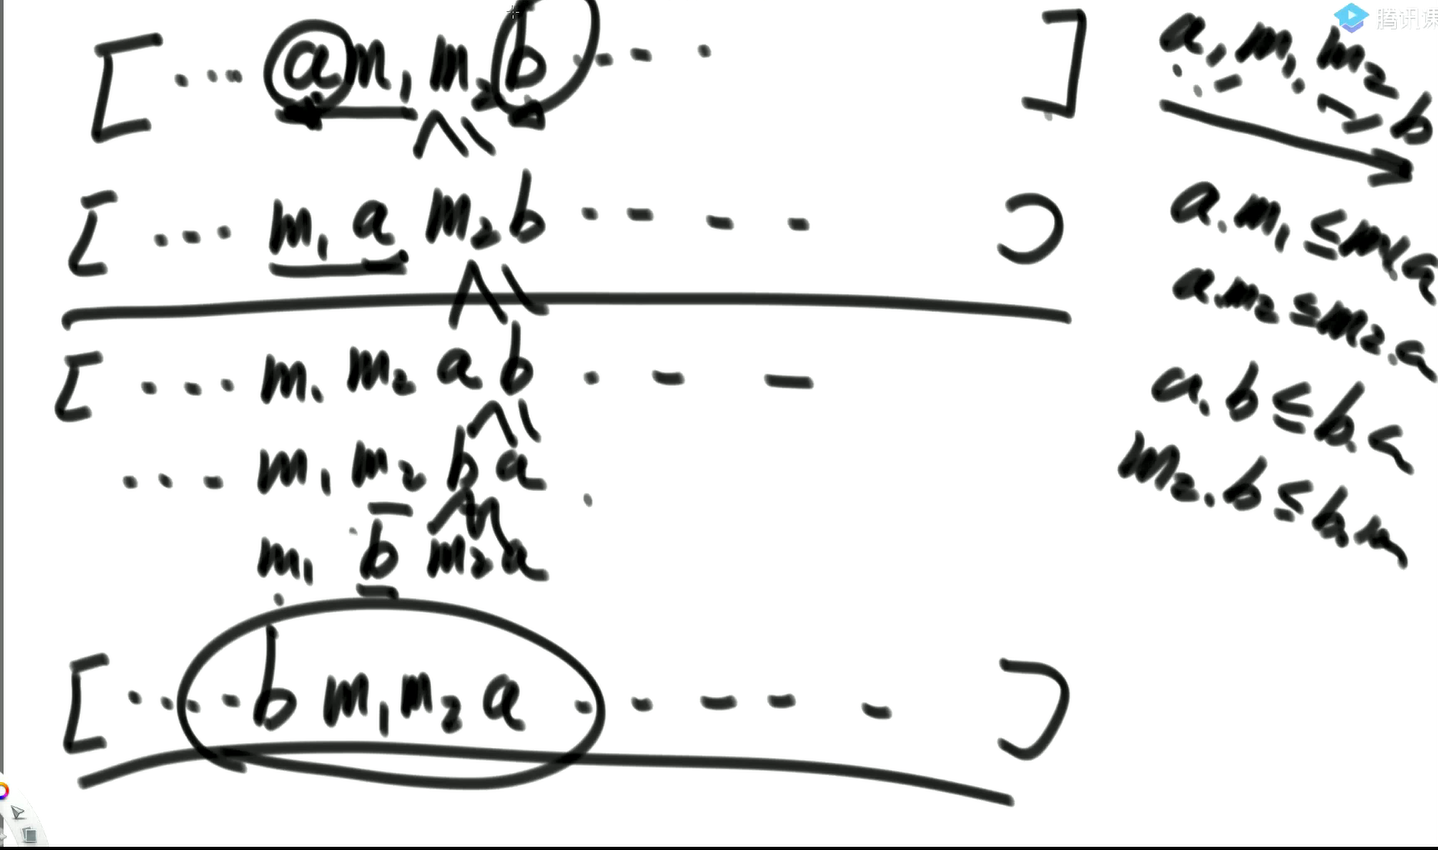 [ ... a m₁ m₂ b ... ]
[ ... m₁ a m₂ b - - - - ]
[ ... m₁ m₂ a b . - -
... m₁ m₂ b a
m₁ b m₂ a
[ ... b m₁ m₂ a - - - - - ]
腾讯课
a, m₁, m₂
b
a.m₁ ≤ m₁.a
a.m₂ ≤ m₂.a
a.b ≤ b.
m₂.b ≤ b.m